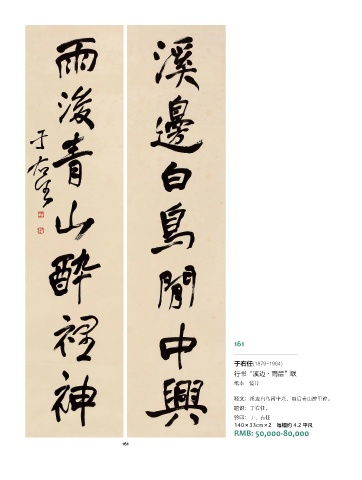 溪邊白鳥閒中興
雨後青山醉裡神
于右任
161
161
于右任(1879-1964)
行书“溪边·雨后”联
纸本 镜片
释文：溪边白鸟闲中兴，雨后青山醉里神。
题识：于右任。
钤印：于、右任
140×33cm×2 每幅约4.2平尺
RMB: 50,000-80,000